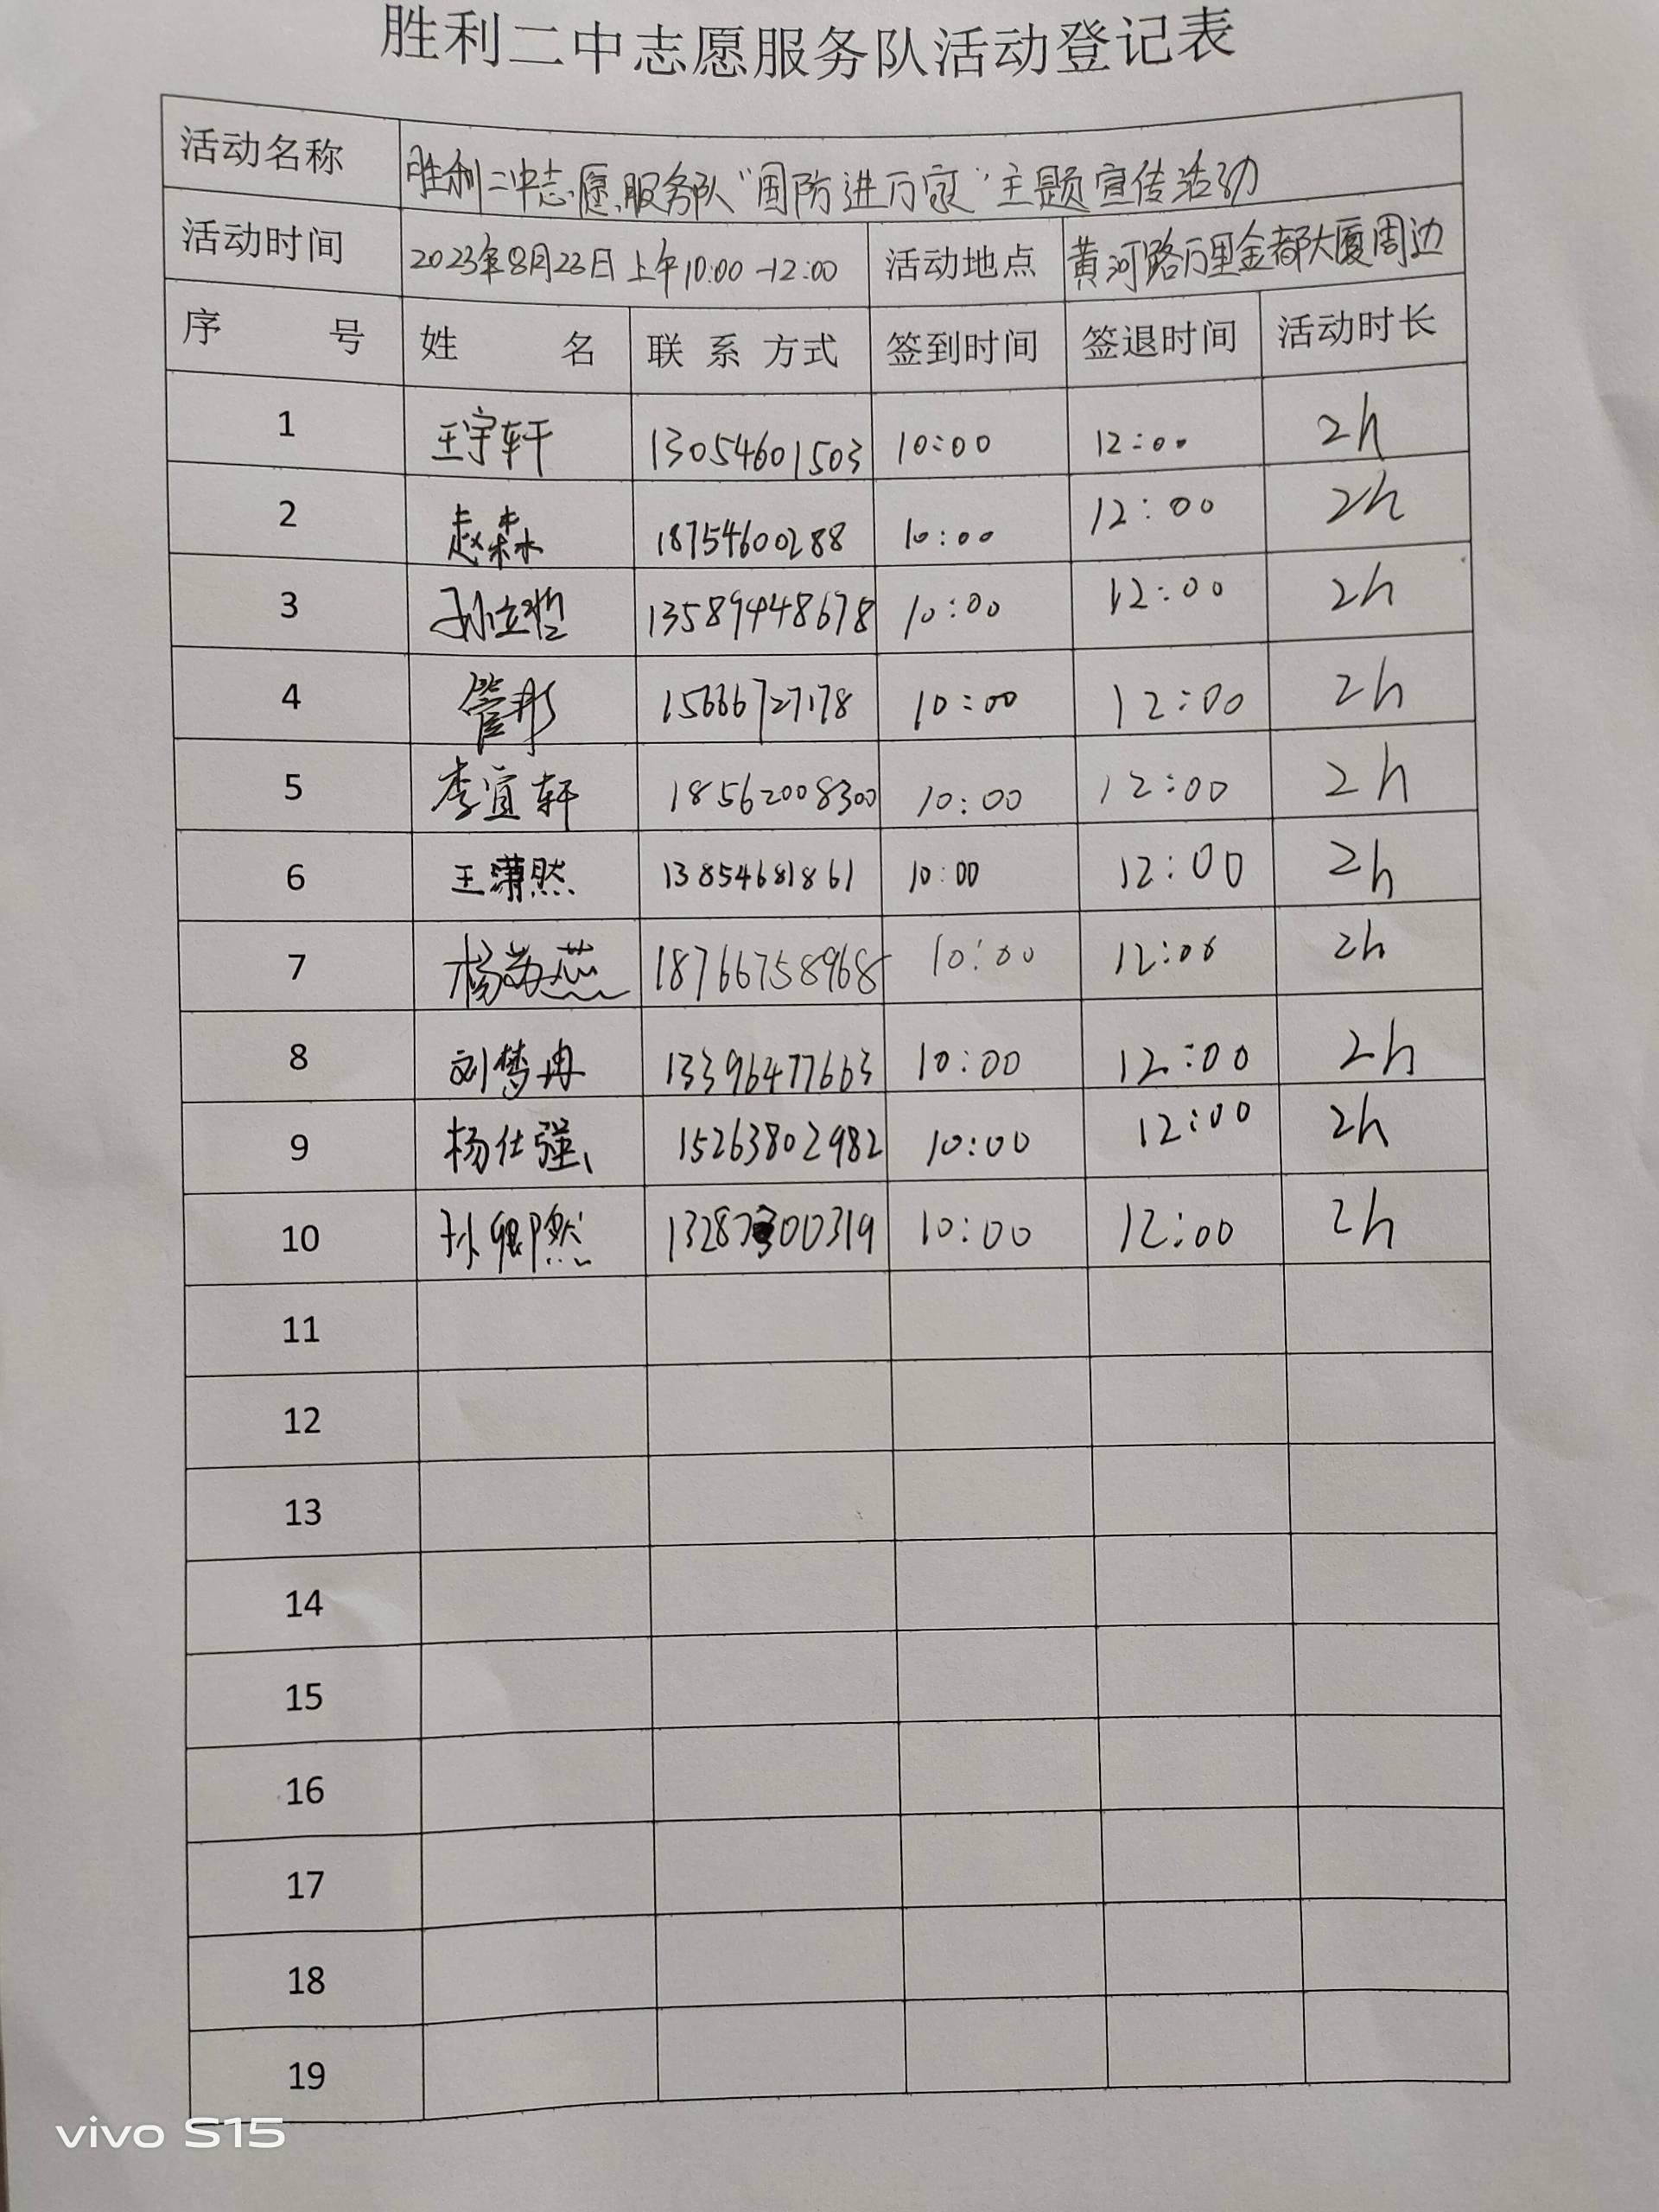 胜利二中志愿服务队活动登记表
活动名称 胜利二中志愿服务队“国防进万家”主题宣传活动
活动时间 2023年8月23日上午10:00-12:00 活动地点 黄河路万里金都大厦周边
序 号 姓 名 联 系 方式 签到时间 签退时间 活动时长
1 王宇轩 13054601503 10:00 12:00 2h
2 赵森 18754600288 10:00 12:00 2h
3 孙立哲 13589448678 10:00 12:00 2h
4 管彤 15666727178 10:00 12:00 2h
5 李宜轩 18562008300 10:00 12:00 2h
6 王潇然 13854681861 10:00 12:00 2h
7 杨 18766758968 10:00 12:00 2h
8 刘梦冉 13396477663 10:00 12:00 2h
9 杨仕强 15263802982 10:00 12:00 2h
10 孙卿然 10:00 12:00 2h
11
12
13
14
15
16
17
18
19
vivo S15